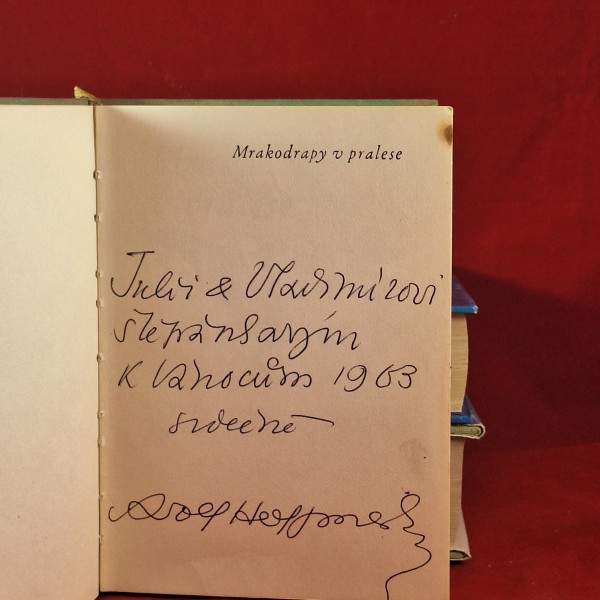 Mrakodrapy v pralese
Julii & Vladimírovi
Štěpánkovým
K Vánocům 1963
srdečně
Adolf Hoffmeister